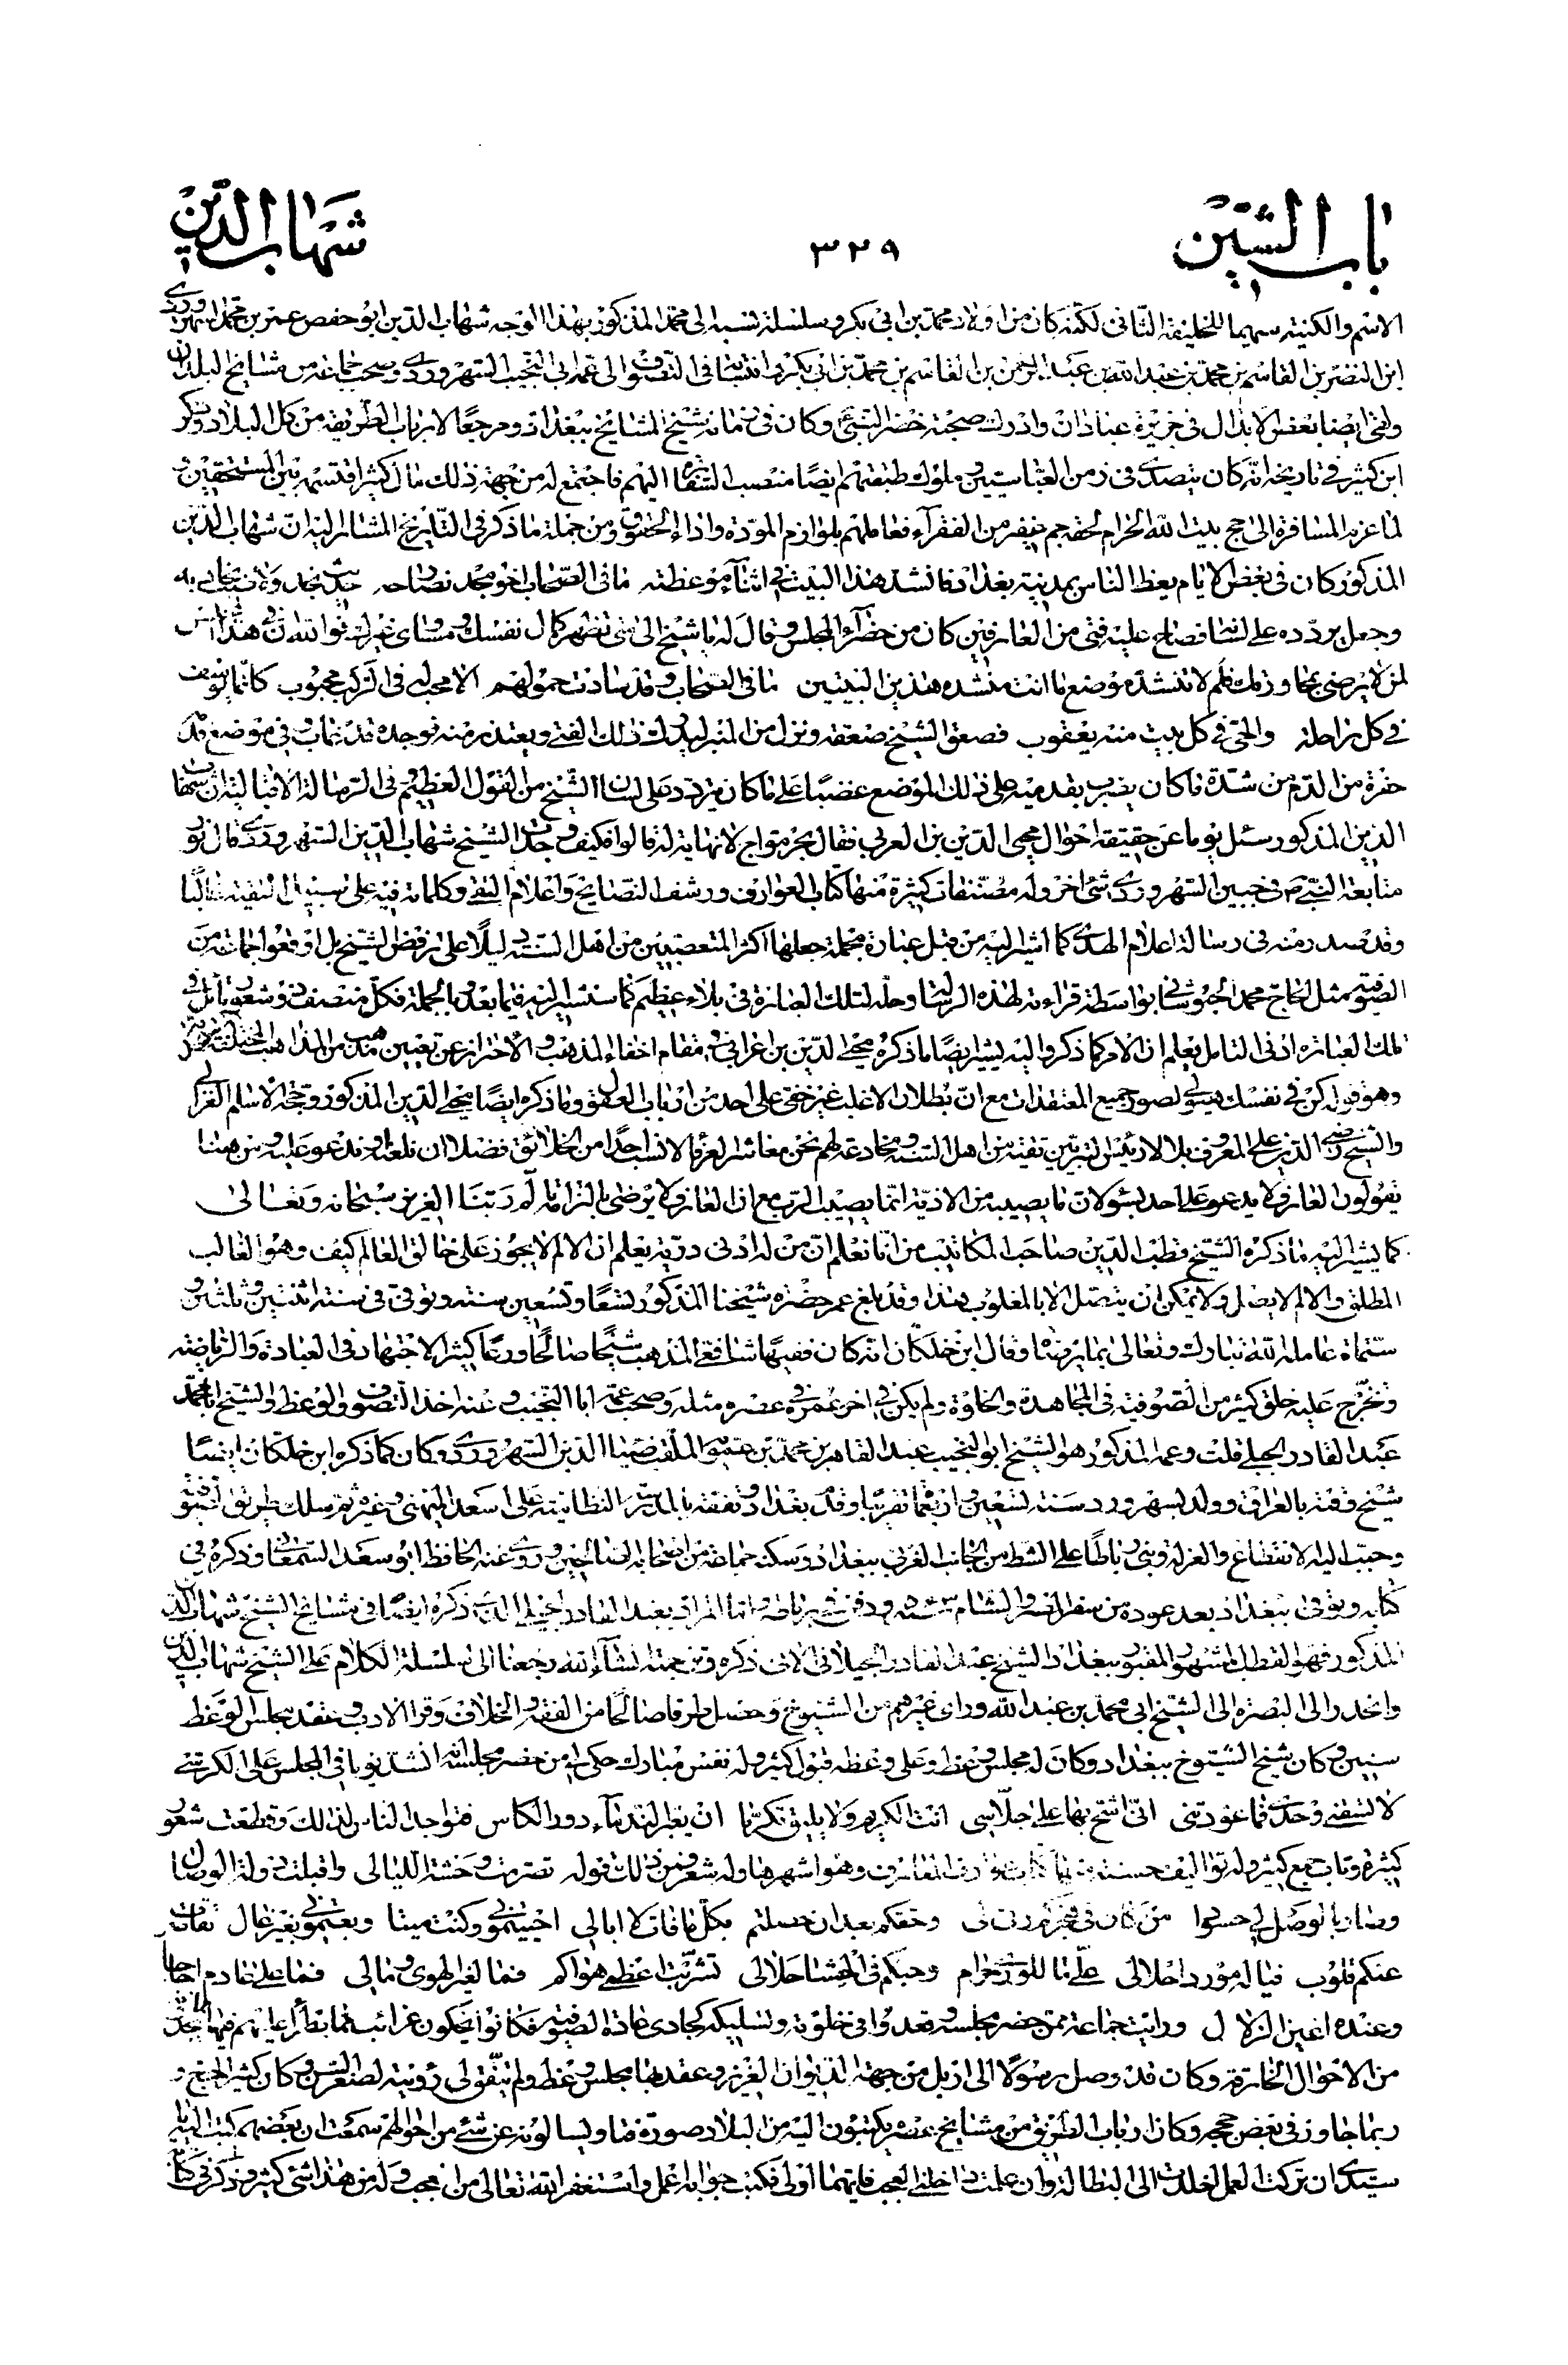 باب الشين
٣٢٩
شهاب الدين
الاسم والكنية سهيما للخليفة الثاني لكنه كان من اولاد محمد بن ابي بكر وسلسلة نسبه الى محمد المذكور بهذا الوجه شهاب الدين ابو حفص عمر بن محمد السهروردي
ابن النضر بن القاسم بن محمد بن عبد الله بن عبد الرحمن بن القاسم بن محمد بن ابي بكر وانتسابه في التصوف الى عمه ابي النجيب السهروردي وصحب جماعة من مشايخ البلدان
ولقى ايضا بعض الابدال في جزيرة عبادان وادرك صحبة خضر النبي وكان في زمانه شيخ المشايخ ببغداد ومرجعا لارباب الطريقة من كل البلاد وذكر
ابن كثير في تاريخه انه كان يتصدى في زمن العباسيين وملوك طبقتهم ايضا منصب السفارة اليهم فاجتمع له من جهة ذلك مال كثير اقتسمه بين المستحقين و
لما عزم المسافرة الى حج بيت الله الحرام لحقه جم غفير من الفقراء فعاملهم بلوازم المودة واداء الحقوق ومن جملة ما ذكر في التاريخ المشار اليه ان شهاب الدين
المذكور كان في بعض الايام يعظ الناس بمدينة بغداد فانشد هذا البيت في اثناء موعظته ما في الصحاب اخو وجد نطارحه حديث نجد ولا خل نجاريه
وجعل يردده على لسانه فصاح عليه فتى من العارفين كان من حضراء المجلس وقال له يا شيخ الى متى تظهر كمال نفسك ومساوى غيرك فوالله ان في هذا المجلس
لمن لا يرضى بمحاورتك فلم لا تنشد في موضع ما انت منشده هذين البيتين ما في الصحاب وقد سارت حمولهم الا محب له في الركب محبوب كانما يوسف
في كل راحلة والحي في كل بيت منه يعقوب فصعق الشيخ صعقة ونزل من المنبر ليدرك ذلك الفتى ويعتذر منه فوجده قد غاب وفي موضع قدمه
حفرة من الدم من شدة ما كان يضرب بقدميه على ذلك الموضع غضبا على ما كان يتردد على لسان الشيخ من القول العظيم وفي الرسالة الاقبالية ان شهاب
الدين المذكور سئل يوما عن حقيقة احوال محيي الدين بن العربي فقال بحر مواج لا نهاية له قالوا فكيف وجدت الشيخ شهاب الدين السهروردي قال نور
متابعة النبي ص في جبين السهروردي شئ اخر وله مصنفات كثيرة منها كتاب العوارف ورشف النصايح واعلام التقى وكلماته فيه على سبيل التقية غالبا
وقد صدر منه في رسالة اعلام الهدى كما اشير اليه من قبل عبارة مجملة جعلها اكثر المتعصبين من اهل السنة دليلا على رفض الشيخ بل اوقعوا جماعة من
الصوفية مثل الحاج محمد الخبوشاني بواسطة قراءته لهذه الرسالة وحله لتلك العبارة في بلاء عظيم كما سنشير اليه فيما بعد وبالجملة فكل منصف ذو شعور تامل في
تلك العبارة ادنى التامل يعلم ان الامر كما ذكر واليه يشير ايضا ما ذكره محيي الدين بن اعرابي في مقام اخفاء المذهب والاحتراز عن تعيين مذهب من المذاهب المختلفة
وهو قوله كن في نفسك هيولى لصور جميع المعتقدات مع ان بطلان الاغلب غير خفي على احد من ارباب العقول وما ذكره ايضا محيي الدين المذكور وحجة الاسلام الغزالي
والشيخ رضي الدين علي المعروف بلالا رئيس الكبرويين تقية من اهل السنة ومخادعة لهم نحن معاشر العرفا لا نسب احدا من الخلائق فضلا ان نلعنه وندعو عليه ومن هنا
يقولون العارف لا يدعو على احد بسوء لان ما يصيبه من الاذية انما يصيب الرب مع ان العارف لا يرضى بالزام الالم ربنا العزيز سبحانه وتعالى
كما يشير اليه ما ذكره الشيخ قطب الدين صاحب المكاتيب من انا نعلم ان من له ادنى درية يعلم ان الالم لا يجوز على خالق العالم كيف وهو الغالب
المطلق والالم لا يصل ولا يمكن ان يتصل الا بالمغلوب هذا وقد بلغ عمر حضرة شيخنا المذكور تسعا وتسعين سنة وتوفى في سنة اثنتين وثلثين و
ستمأة عامله الله تبارك وتعالى بما يرضيه وقال ابن خلكان انه كان فقيها شافعي المذهب شيخا صالحا ورعا كثير الاجتهاد في العبادة والرياضة
وتخرج عليه خلق كثير من الصوفية في المجاهدة والخلوة ولم يكن في اخر عمره في عصره مثله وصحب عمه ابا النجيب وعنه اخذ التصوف والوعظ والشيخ ابا محمد
عبد القادر الجيلي قلت وعمه المذكور هو الشيخ ابو النجيب عبد القاهر بن محمد بن عمويه الملقب ضياء الدين السهروردي وكان كما ذكره ابن خلكان ايضا
شيخ وقته بالعراق وولد بسهرورد سنة تسعين واربعمأة تقريبا وقدم بغداد وتفقه بالمدرسة النظامية على اسعد الميهني وغيره ثم سلك طريق الصوفية
وحبب اليه الانقطاع والعزلة وبنى رباطا على الشط من الجانب الغربي ببغداد وسكنه جماعة من اصحابه الصالحين وروى عنه الحافظ ابو سعد السمعاني وذكره في
كتابه وتوفى ببغداد بعد عوده من سفرانه والشام ودفن في رباطه واما المراد بعبد القادر الجيلي الذي ذكره ايضا في مشايخ الشيخ شهاب الدين
المذكور فهو القطب المشهور المقبور ببغداد الشيخ عبد القادر الجيلاني الاتي ذكره وترجمته انشاء الله رجعنا الى سلسلة الكلام على الشيخ شهاب الدين
وانحدر الى البصرة الى الشيخ ابي محمد بن عبد الله وراى غيرهم من الشيوخ وحصل طرفا صالحا من الفقه والخلاف وقرا الادب وعقد مجلس الوعظ
سنين وكان شيخ الشيوخ ببغداد وكان له مجلس وعظ وعلى وعظه قبول كثير وله نفس مبارك حكى لي من حضر مجلسه انه انشد يوما في المجلس على الكرسي
لا تسقني وحدي فما عودتني اني اشح بها على جلاسي انت الكريم ولا يليق تكرما ان يعبر الندماء دور الكاس فتواجد الناس لذلك وقطعت شعور
كثيرة وتاب جمع كثير وله تواليف حسنة منها كتاب عوارف المعارف وهو اشهرها وله شعر فمن ذلك قوله تصرمت وحشة الليالي واقبلت دولة الوصال
وصار بالوصل لي حسودا من كان في هجركم رثى لي وحقكم بعد ان حصلتم بكل ما فات لا ابالي احييتموني وكنت ميتا وبعتموني بغير غال تقاصرت
عنكم قلوب فيا له موردا حلا لي علي ما للورى حرام وحبكم في الحشا حلالي تشربت اعظمي هواكم فما لغير الهوى وما لي فما على عادم اجاجا
وعنده اعين الزلال ورايت جماعة ممن حضر مجلسه وقعدوا في خلوته وتسليكه كجاري عادة الصوفية فكانوا يحكون غرائب مما يطرأ عليهم فيها مما يجدونه
من الاحوال الخارقة وكان قد وصل رسولا الى اربل من جهة الديوان العزيز وعقد بها مجلس وعظ ولم يتفق لي رؤيته لصغر السن وكان كثير الحج و
ربما جاور في بعض حججه وكان ارباب الطريق من مشايخ عصره يكتبون اليه من البلاد صورة فتاو يسالونه عن شئ من احوالهم سمعت ان بعضهم كتب اليه يا
سيدي ان تركت العمل اخلدت الى البطالة وان عملت داخلني العجب فايهما اولى فكتب جوابه اعمل واستغفر الله تعالى من العجب وله من هذا شئ كثير وذكر في كتابه